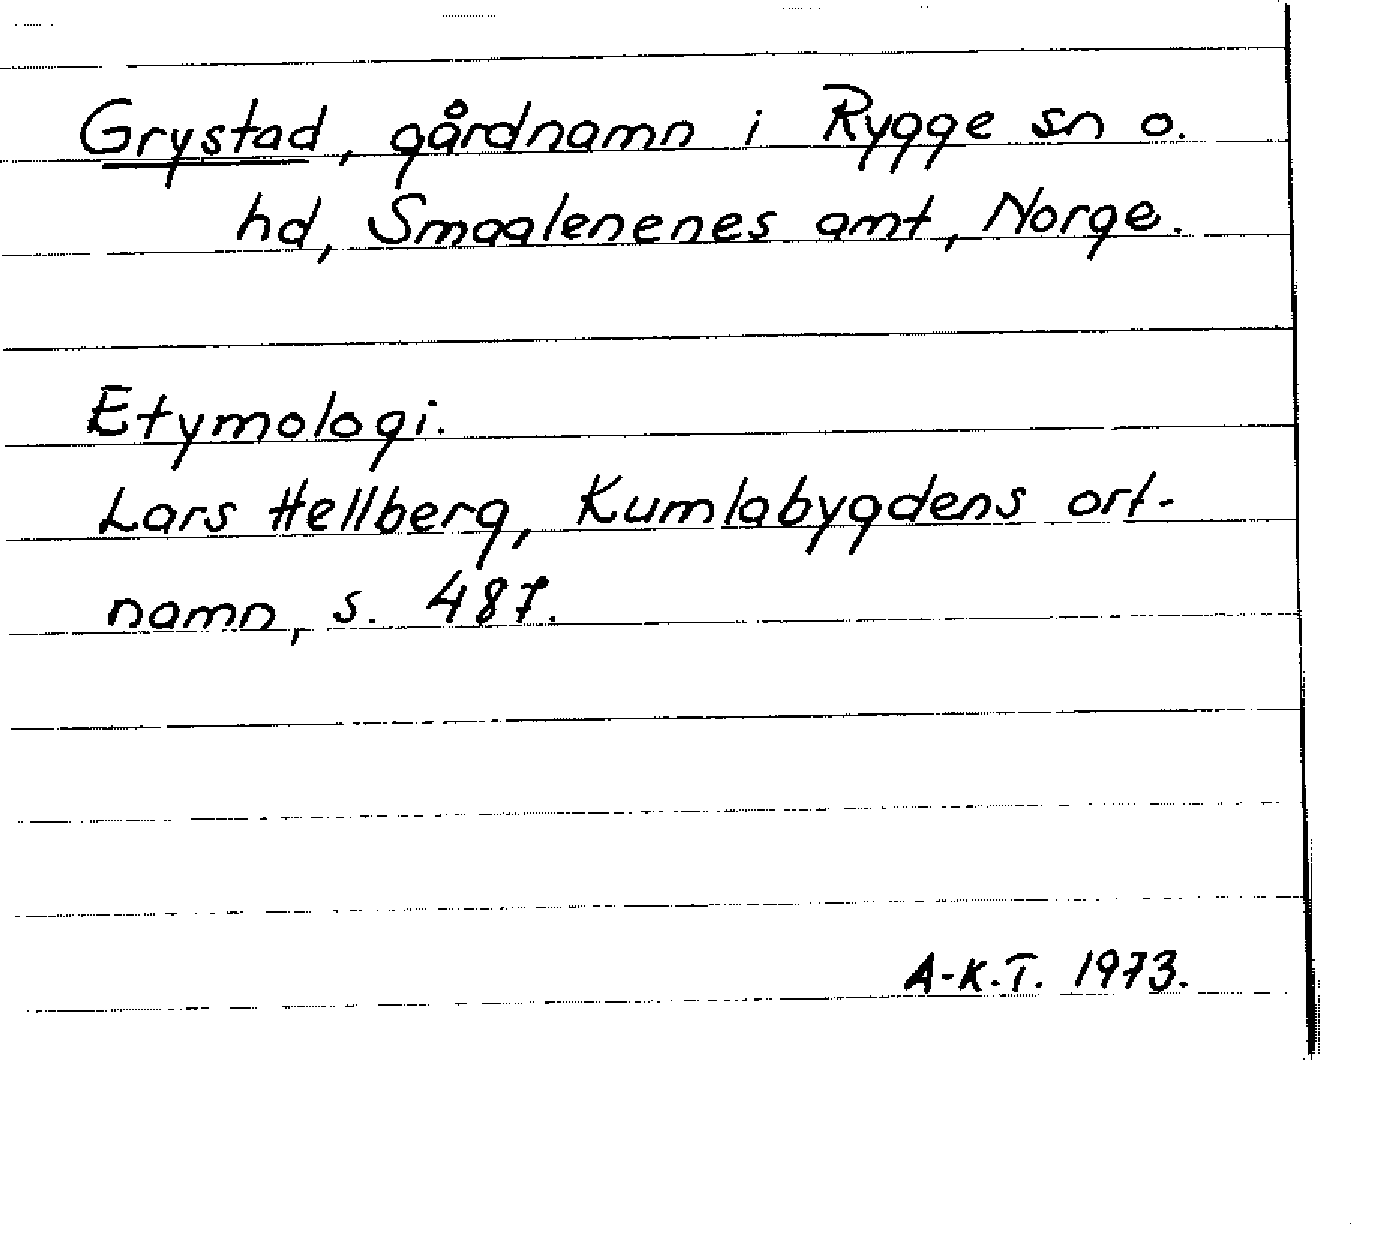 Grystad, gårdnamn i Rygge sn o.
hd, Smaalenenes amt, Norge.
Etymologi.
Lars Hellberg, Kumlabygdens ort-
namn, s. 487.
A-K.T. 1973.